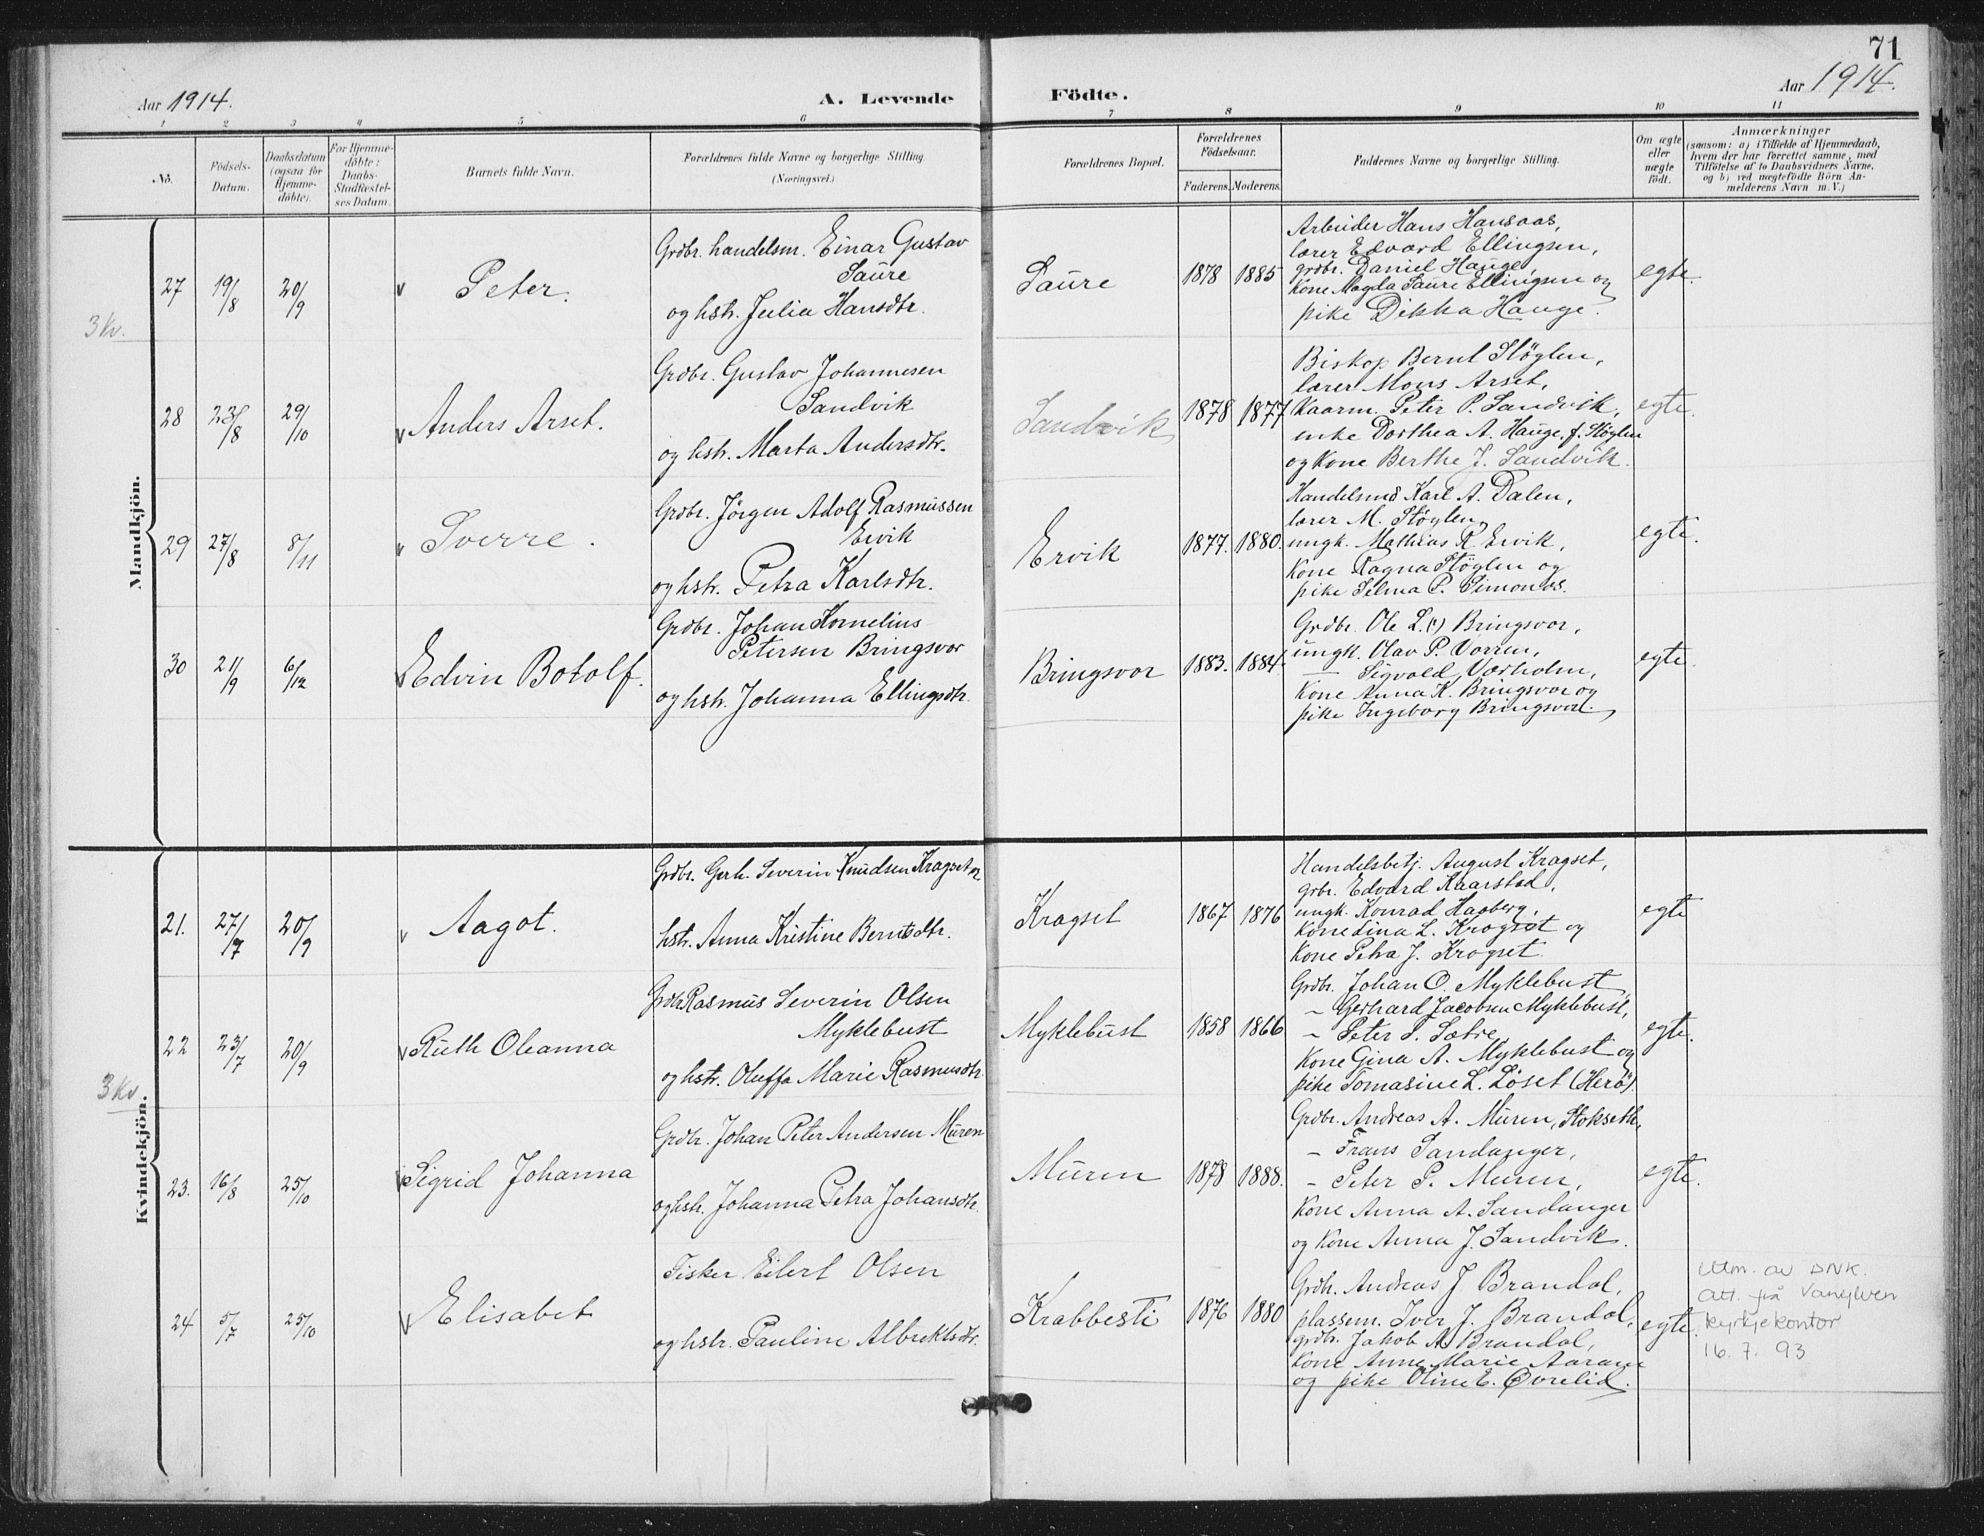 71
Aar 1914.
A. Levende Födte.
Aar 1914.
1 2 3 4 5 6 7 8 9 10 11
No.
Födsels-Datum.
Daabsdatum (ogsaa for Hjemme-döbte).
For Hjemme-döbte: Daabs-Stadfæstel-ses Datum.
Barnets fulde Navn.
Forældrenes fulde Navne og borgerlige Stilling. (Næringsvei.)
Forældrenes Bopæl.
Forældrenes Födselsaar.
Faderens. Moderens.
Faddernes Navne og borgerlige Stilling.
Om ægte eller uægte födt.
Anmærkninger
(saasom: a) i Tilfælde af Hjemmedaab,
hvem der har forrettet samme, med
Tilföielse af to Daabsvidners Navne,
og b) ved uægtefödte Börn An-
melderens Navn m.V.)
Mandkjön.
3 Kv.
27 19/8 20/9 v Peter.
Grdbr. handelsm. Einar Gustav
Saure
og hstr. Julia Hansdtr.
Saure 1878 1885
Arbeider Hans Hansaas,
lærer Edvard Ellingsen,
grdbr. Daniel Hauge,
Kone Magda Saure Ellingsen og
pike Dikka Hauge.
egte.
28 23/8 29/10 v Anders Arset.
Grdbr. Gustav Johannesen
Sandvik
og hstr. Marta Andersdtr.
Sandvik 1878 1877
Biskop Bernt Støylen,
lærer Mons Arset,
Kaarm. Peter P. Sandvik,
enke Dorthea A. Hauge f. Støylen
og Kone Berthe J. Sandvik.
egte.
29 27/8 8/11 v Sverre.
Grdbr. Jörgen Adolf Rasmussen
Ervik
og hstr. Petra Karlsdtr.
Ervik 1877. 1880.
Handelsmd Karl A. Dalen,
lærer M. Støylen,
ungk. Mathias R. Ervik,
Kone Ragna Støylen og
pike Selma P. Simones.
egte.
30 21/9 6/12 v Edvin Botolf.
Grdbr. Johan Kornelius
Petersen Bringsvor
og hstr. Johanna Ellingsdtr.
Bringsvor 1883. 1884.
Grdbr. Ole L. Bringsvor,
ungk. Olav P. Vorren,
— Sigvald Værholm,
Kone Anna K. Bringsvor og
pike Ingeborg Bringsvor.
egte.
Kvindekjön.
3 Kv.
21. 27/7 20/9 v Aagot.
Grdbr. Gerh. Severin Knudsen Kragset og
hstr. Anna Kristine Berntsdtr.
Kragset 1867 1876
Handelsbetj. August Kragset,
grbr. Edvard Kaarstad,
ungk. Konrad Hagberg,
Kone Lina L. Kragset og
Kone Petra J. Kragset.
egte
22 23/7 20/9 v Ruth Oleanna
Grdbr Rasmus Severin Olsen
Myklebust
og hstr. Oluffa Marie Rasmusdtr.
Myklebust 1858 1866
Grdbr. Johan O. Myklebust,
— Gerhard Jacobsen Myklebust,
— Peter P. Sætre,
Kone Gina A. Myklebust og
pike Tomasine L. Löset (Herö)
egte.
23. 16/8 25/10 v Sigrid Johanna
Grdbr. Johan Peter Andersen Muren
og hstr. Johanna Petra Johansdtr.
Muren 1878 1888.
Grdbr. Andreas A. Muren, Stokseth,
— Frans Sandanger,
— Peter P. Muren,
Kone Anna A. Sandanger
og Kone Anna J. Sandvik.
egte.
24 5/7 25/10 v Elisabet
Fisker Eilert Olsen
og hstr. Pauline Albrektsdtr.
Krabbesti 1876 1880
Grdbr. Andreas J Brandal,
plassem. Iver J. Brandal,
grdbr. Jakob A Brandal,
Kone Anne Marie Aaram
og pike Oline E. Øvrelid.
egte.
Utm. av DNK.
Att. på Vanylven
kyrkjekontor
16. 7. 93